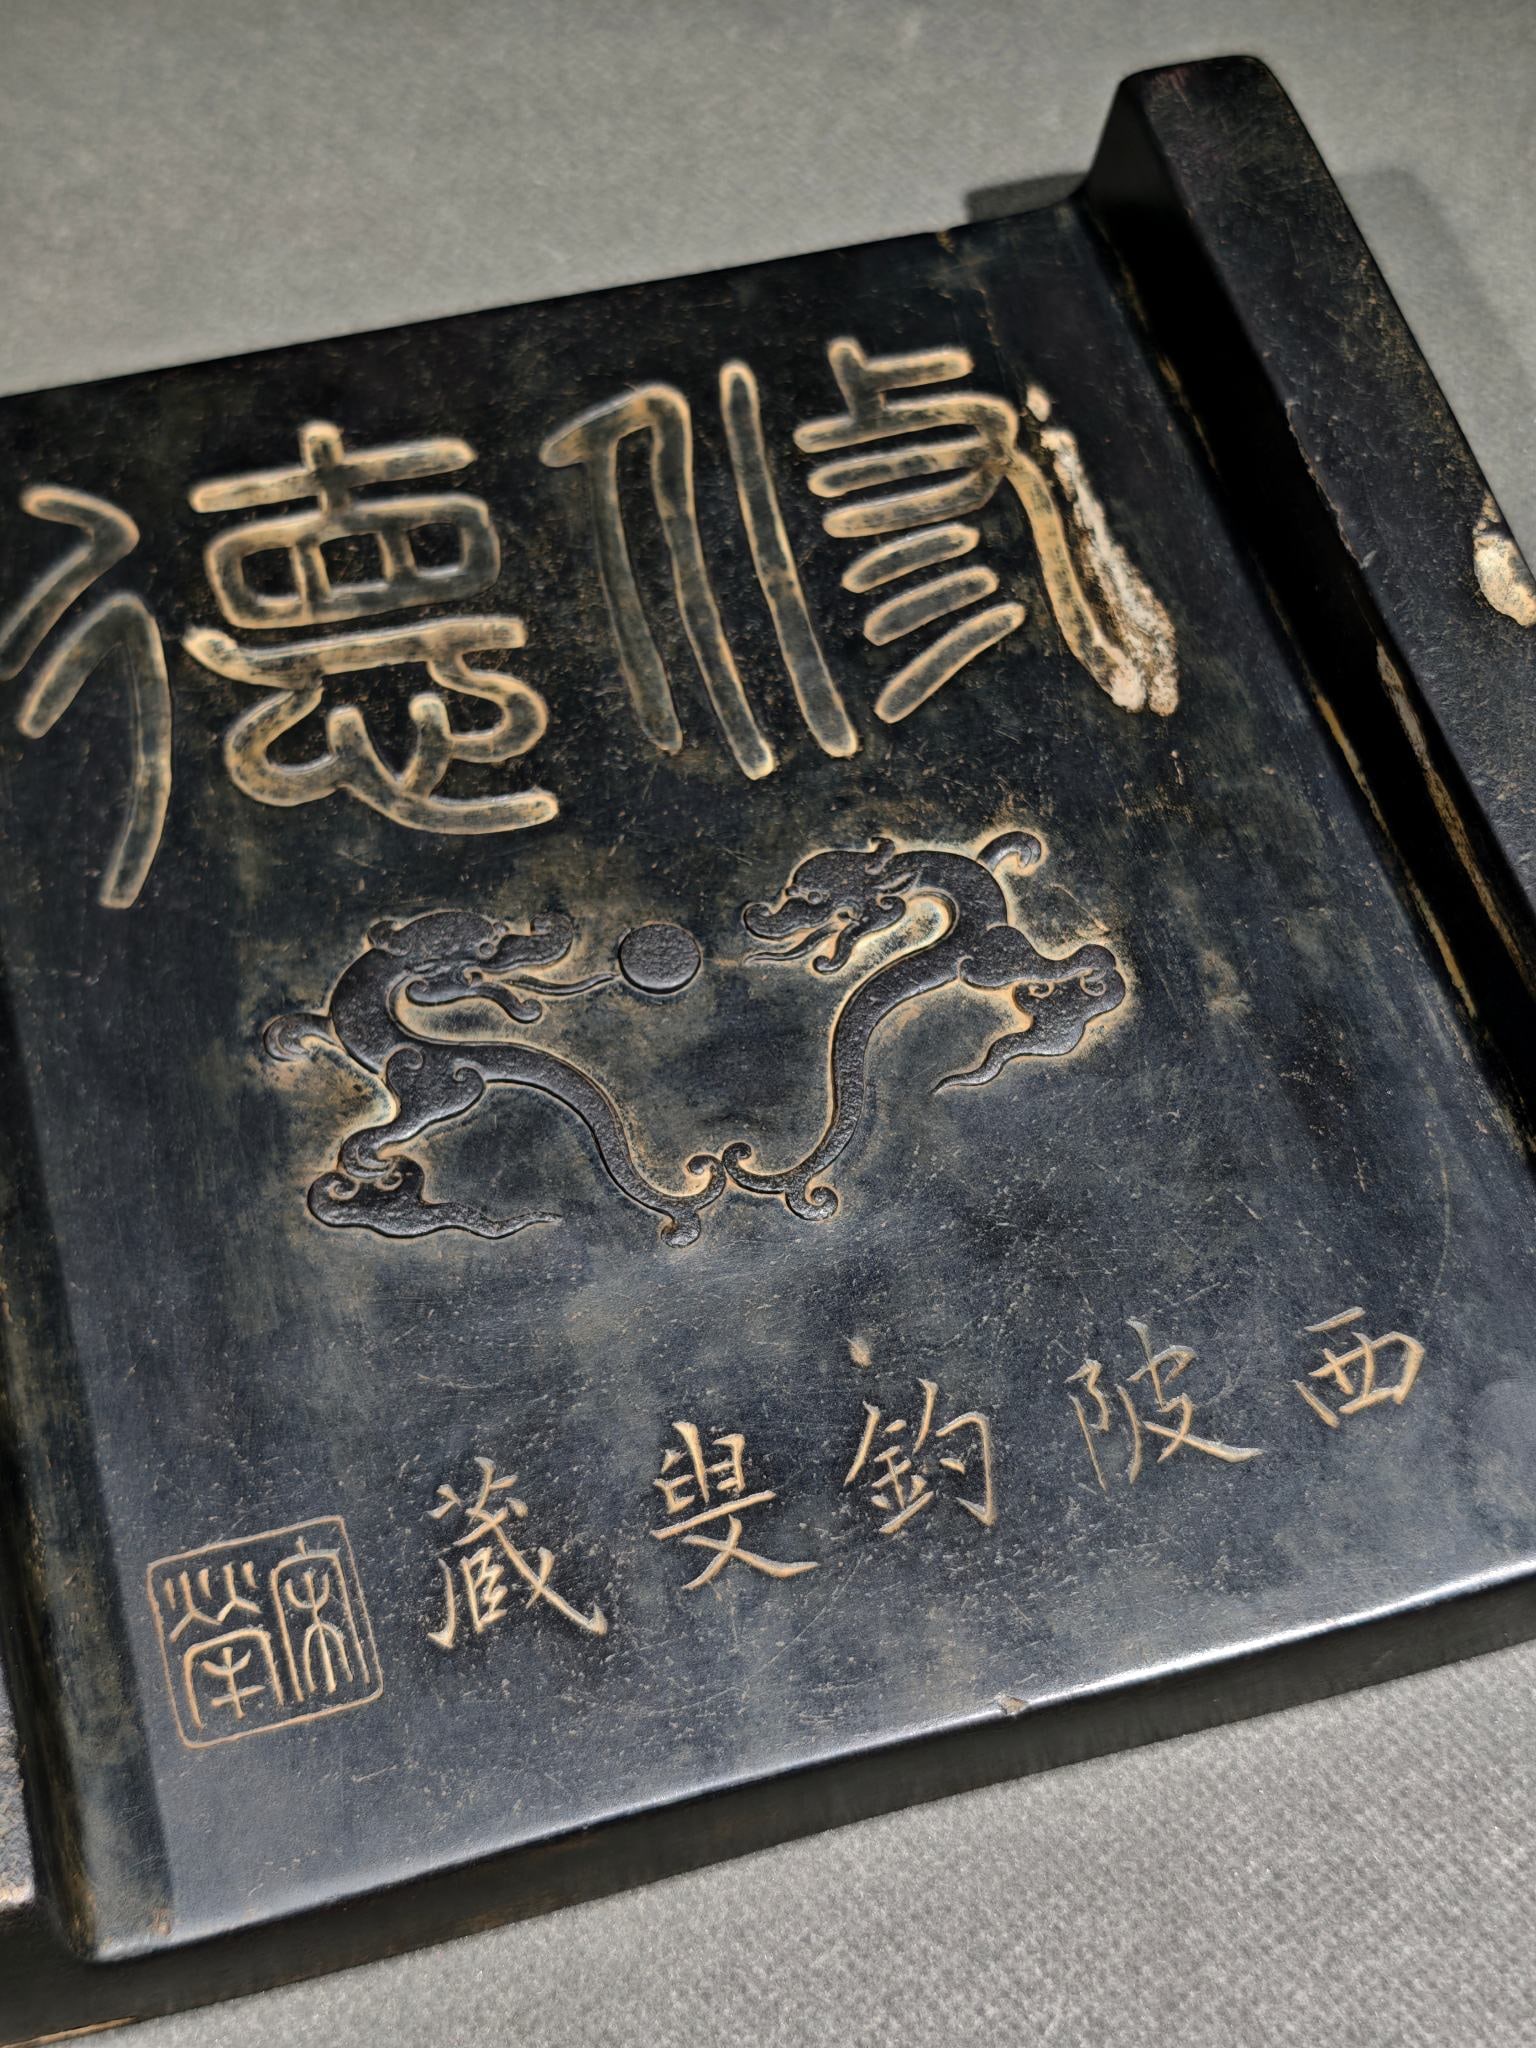 修德
西陂釣叟藏
宋犖